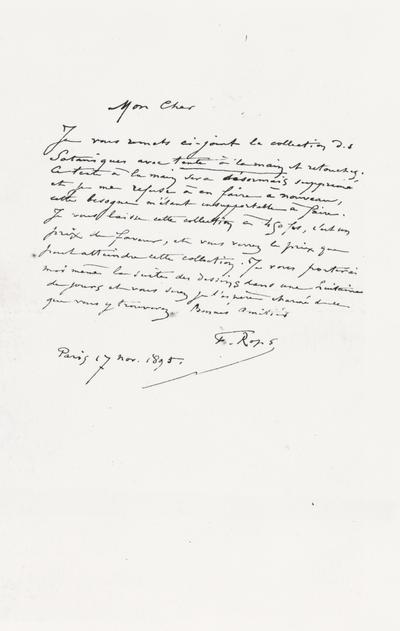 Mon Cher
Je vous remets ci-joint la collection des
Sataniques avec texte à la main et retouches.
Ce texte à la main sera désormais supprimé,
et je me refuse à en faire à nouveau,
cette besogne m'étant insupportable à faire.
Je vous laisse cette collection à 450 frs, c'est un
prix de faveur, et vous verrez le prix que
peut atteindre cette collection. Je vous porterai
moi même la suite des dessins dans une huitaine
de jours et vous serez je l'espère charmé de ce
que vous y trouverez Bonnes Amitiés
F. Rops
Paris 17 nov. 1895.